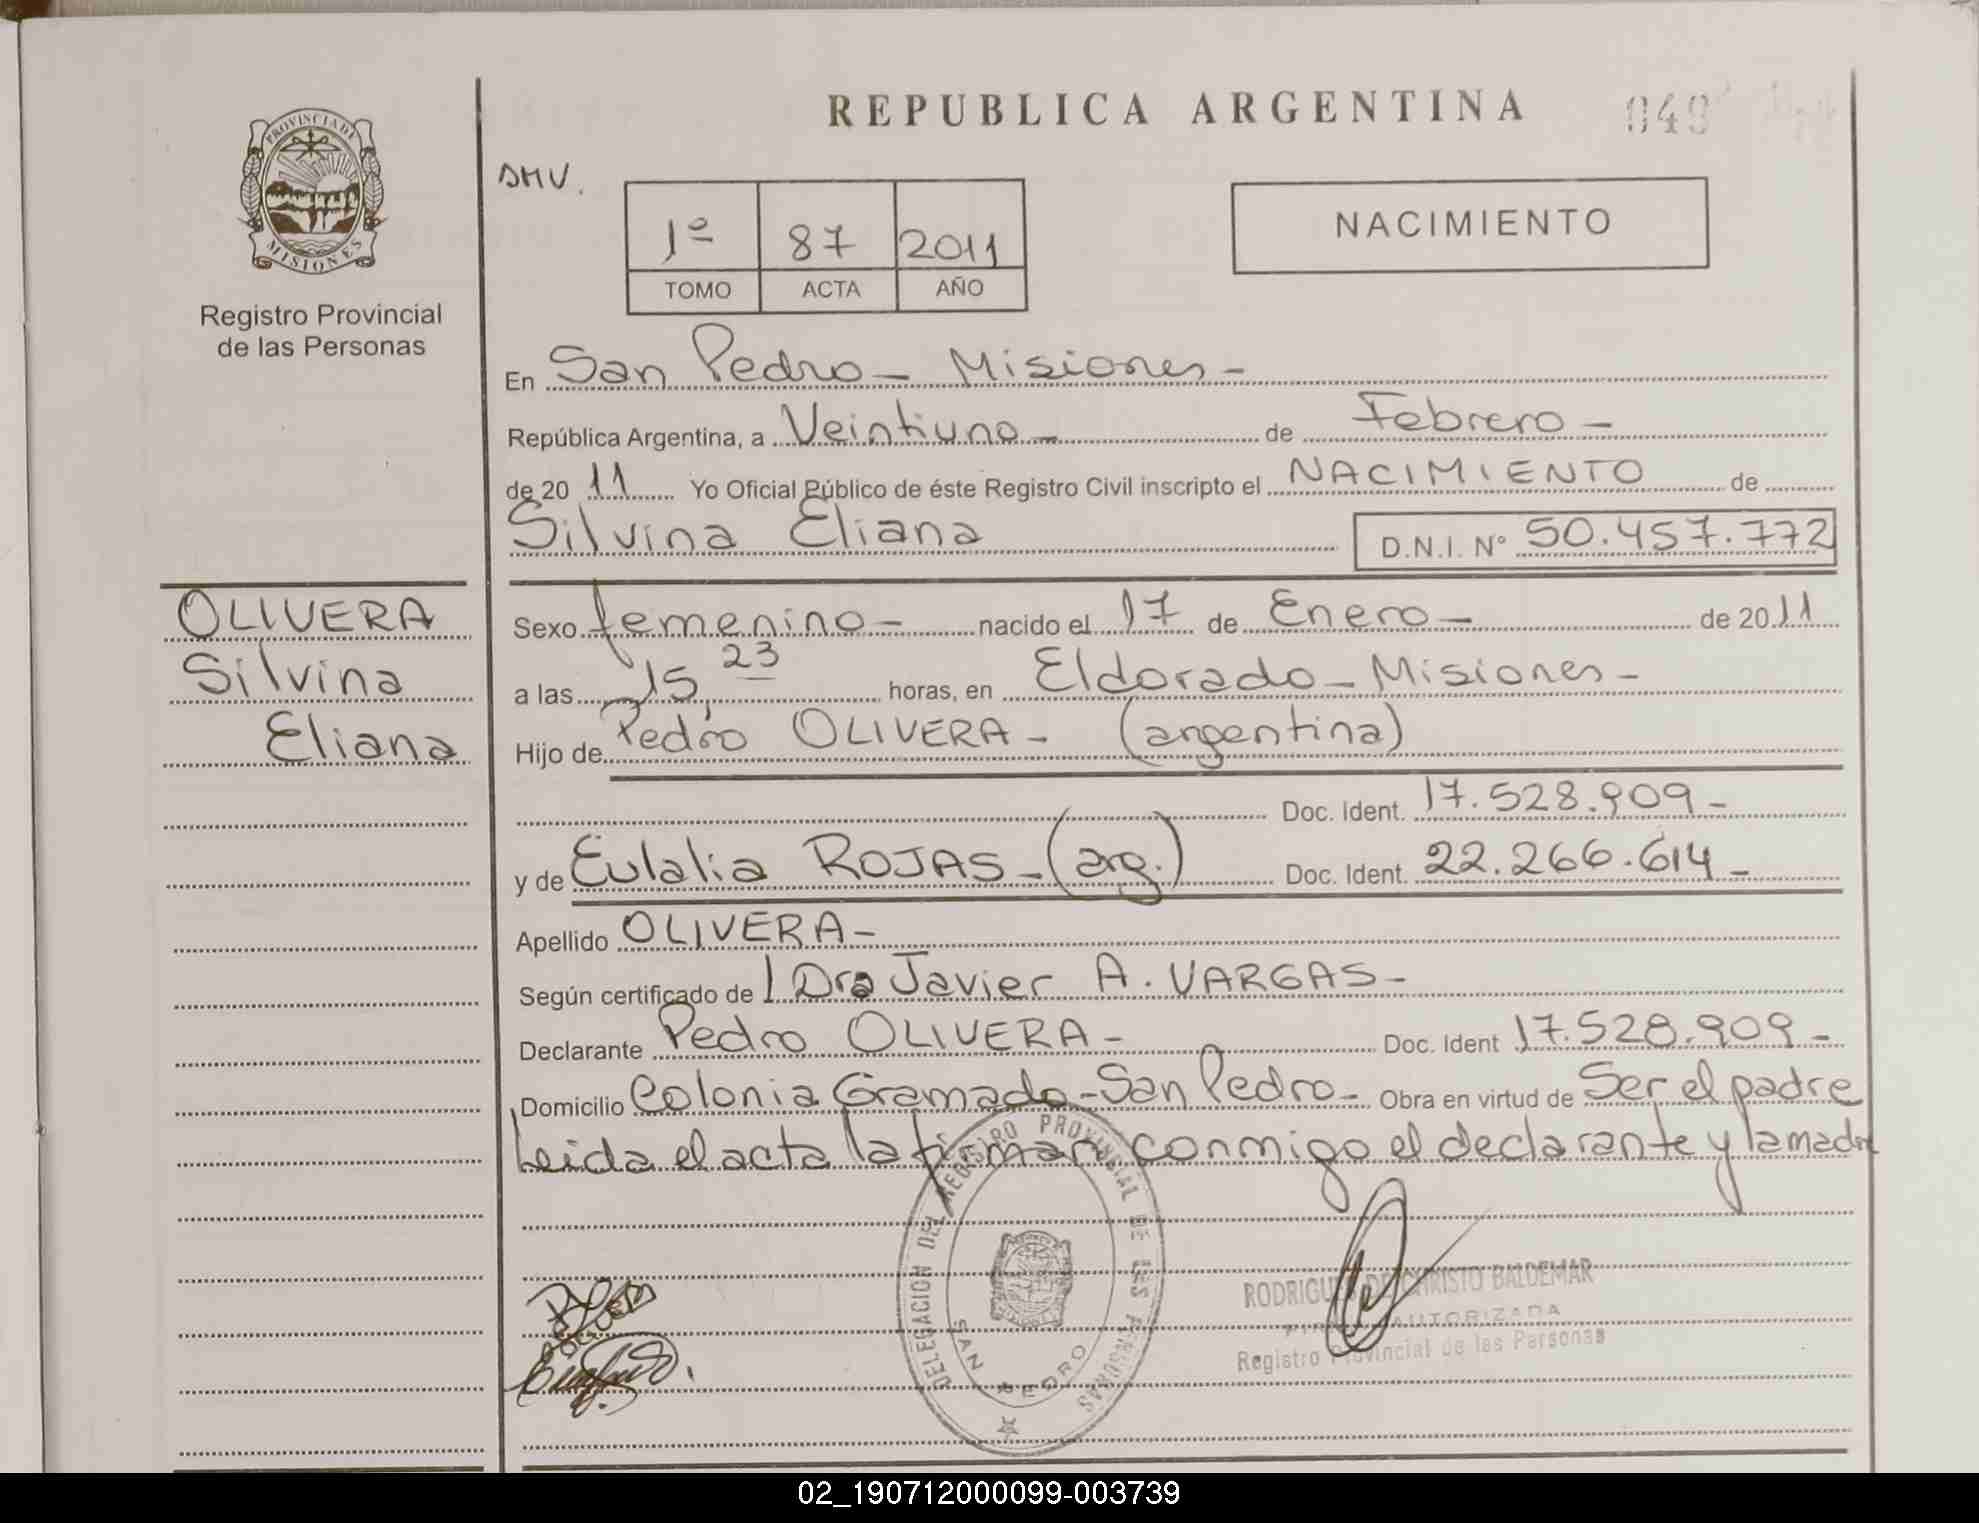 REPUBLICA ARGENTINA 049
PROVINCIA DE
MISIONES
Registro Provincial
de las Personas
DMV.
1º 87 2011
TOMO ACTA AÑO
NACIMIENTO
En San Pedro - Misiones -
República Argentina, a Veintiuno - de Febrero -
de 20 11 Yo Oficial Público de éste Registro Civil inscripto el NACIMIENTO de
Silvina Eliana D.N.I. N° 50.457.772
OLIVERA
Silvina
Eliana
Sexo femenino - nacido el 17 de Enero - de 20 11
a las 15, 23 horas, en Eldorado - Misiones -
Hijo de Pedro OLIVERA - (argentina)
Doc. Ident. 17.528.909 -
y de Eulalia ROJAS - (arg.) Doc. Ident. 22.266.614 -
Apellido OLIVERA -
Según certificado de / Dra Javier A. VARGAS -
Declarante Pedro OLIVERA - Doc. Ident 17.528.909 -
Domicilio Colonia Gramado - San Pedro - Obra en virtud de Ser el padre
Leida el acta la firman conmigo el declarante y la madre
DELEGACION DEL REGISTRO PROVINCIAL DE LAS PERSONAS
SAN PEDRO
RODRIGUEZ DE CHRISTO BALDEMAR
FIRMA AUTORIZADA
Registro Provincial de las Personas
02_190712000099-003739